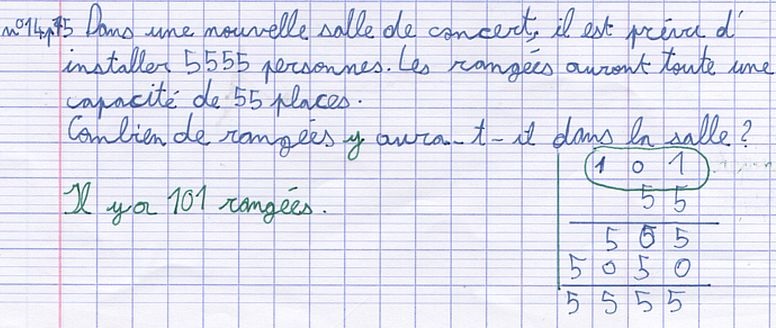 n°14p75 Dans une nouvelle salle de concert, il est prévu d'
installer 5555 personnes. Les rangées auront toute une
capacité de 55 places.
Combien de rangées y aura-t-il dans la salle ?
Il y a 101 rangées.
1 0 1
5 5
5 0 5
5 0 5 0
5 5 5 5